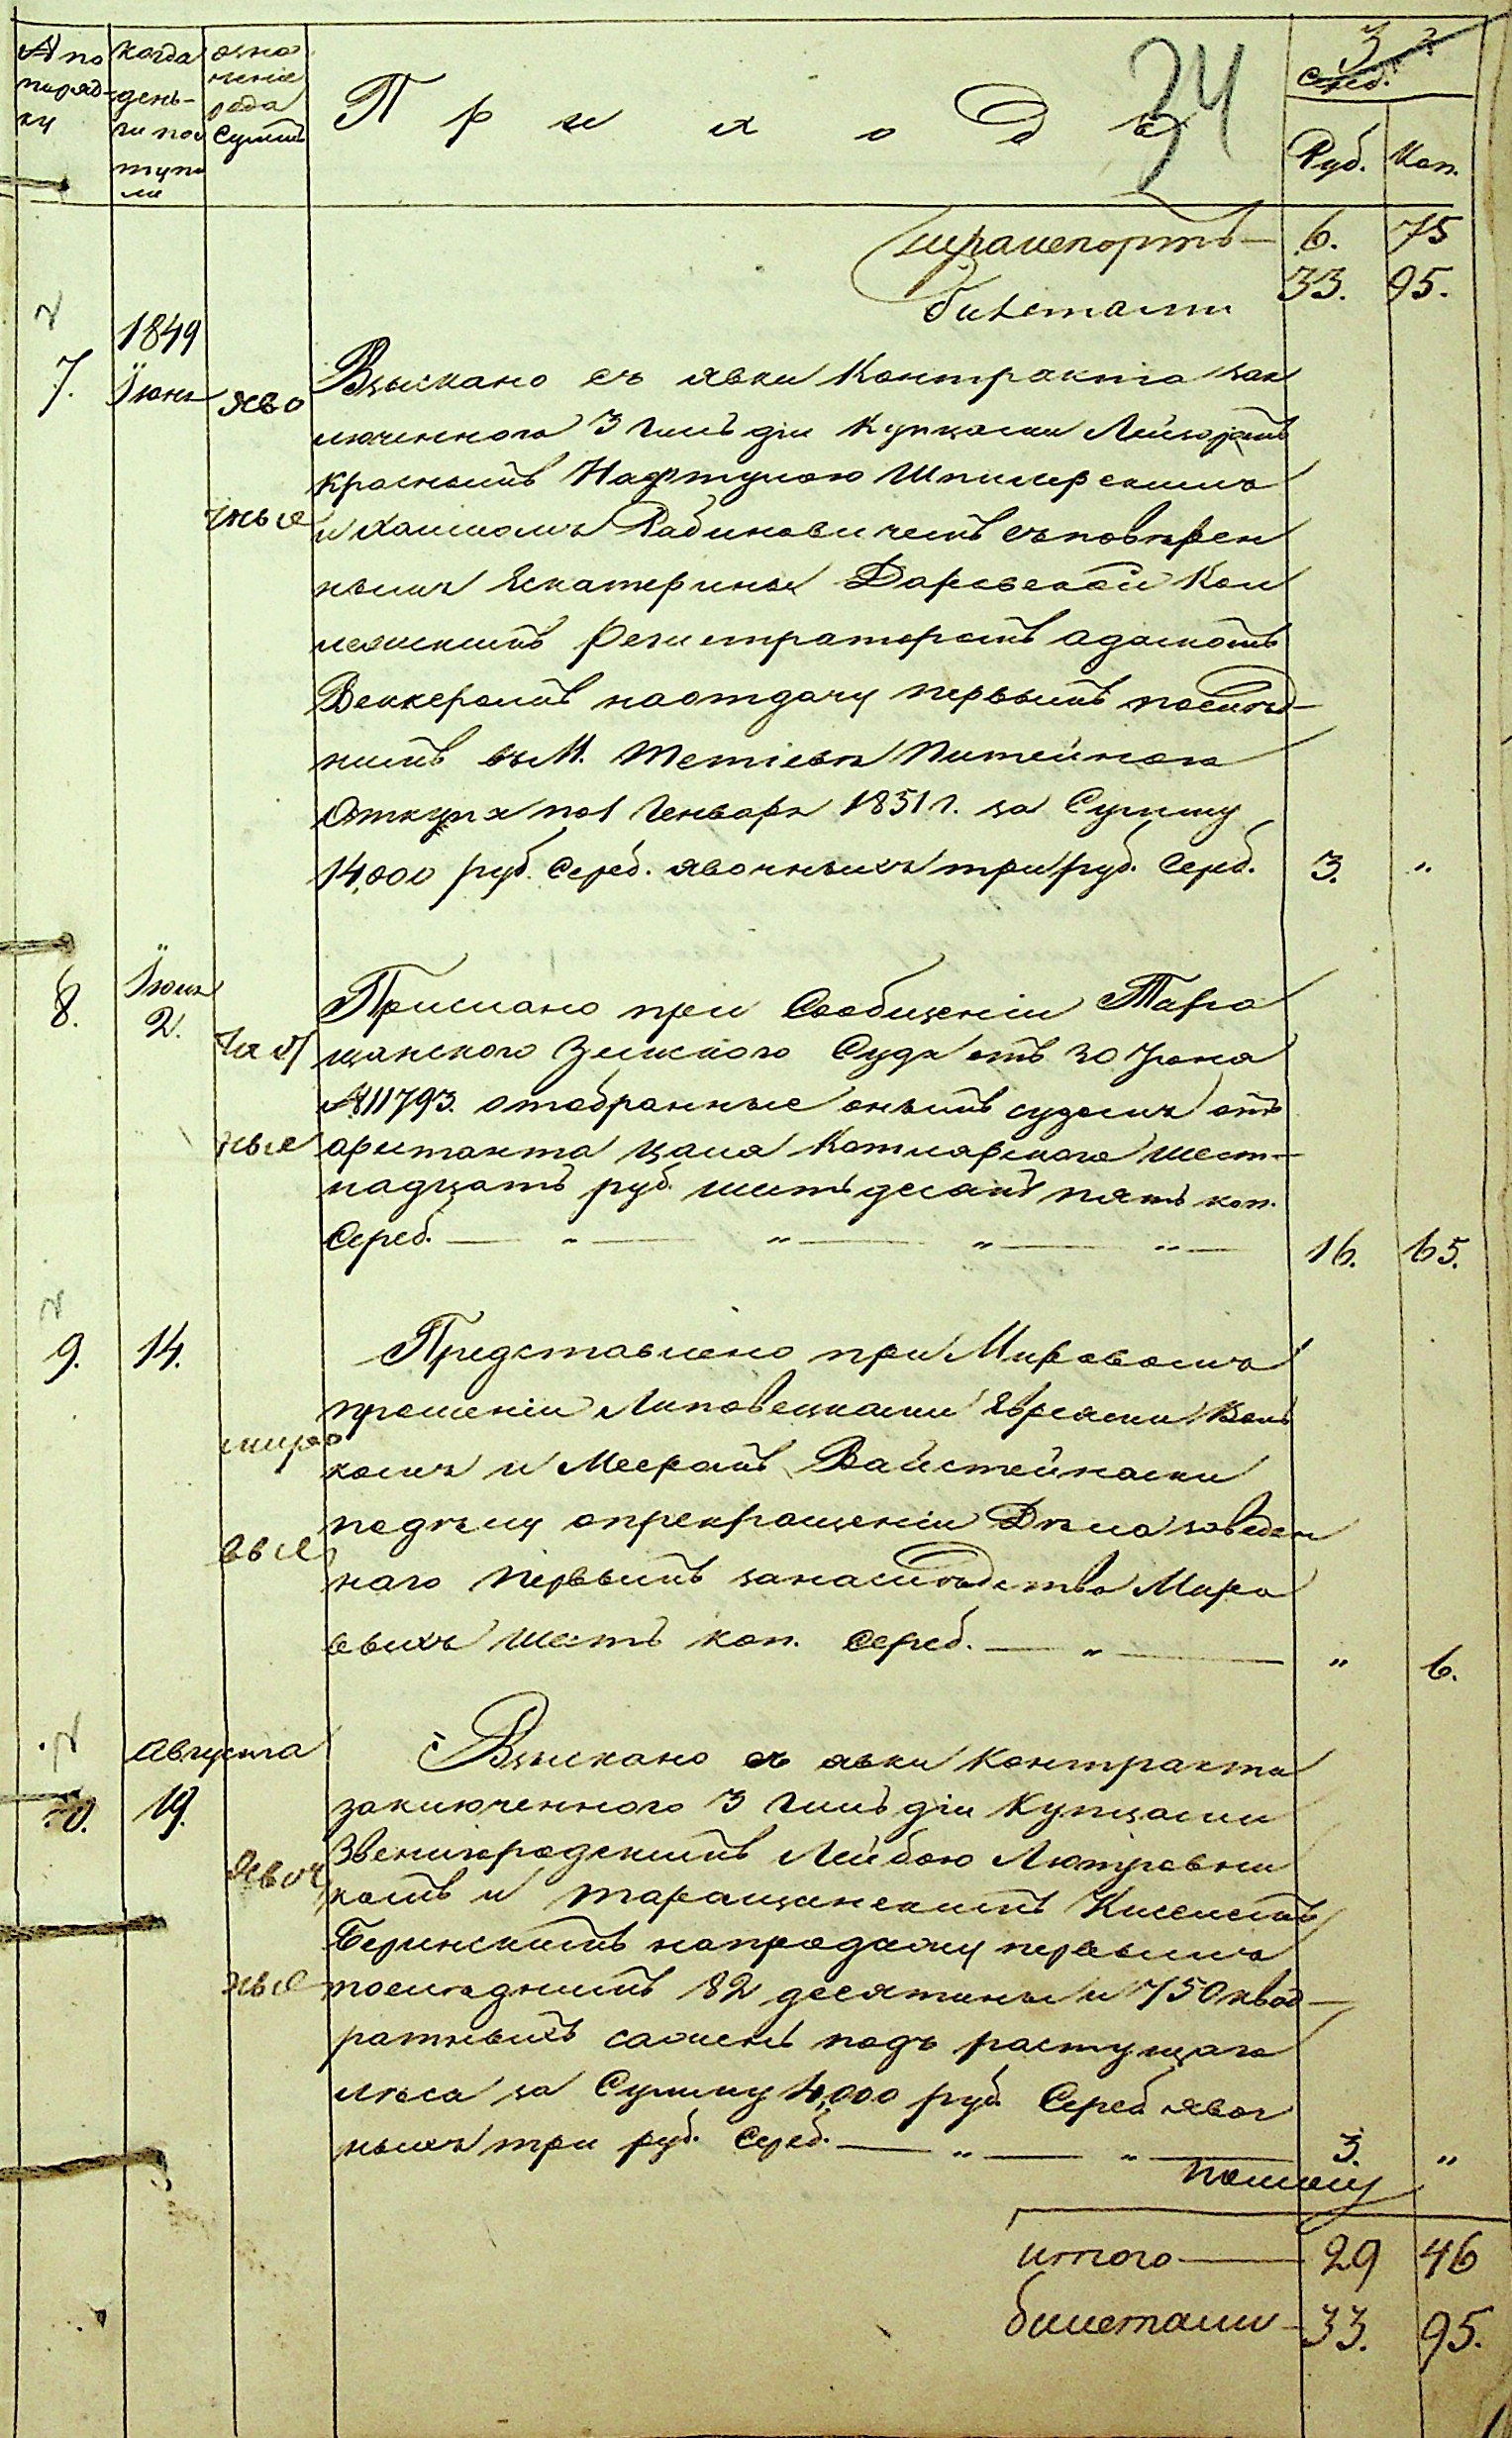 № по поряд- ку
когда день- ги пос тупи ли
озна ченіе рода суммъ
Приходъ
34
3
Сереб.
Руб. Коп.
транспортъ — 6. 75
билетами 33. 95.
1849
7. Іюня яво чные
Взыскано съ явки Контракта зак
люченного 3 гильдіи Купцами
Краснымъ Нафтулою Шпилерскимъ
и Хаимомъ Рабиновичемъ съ повѣрен
нымъ Екатерины Даровской Кол
лежскимъ Регистраторомъ Адамомъ
Веккеромъ на отдачу первымъ послѣд-
нимъ въ М. Тетіевѣ Питейного
Откупа по 1 Генваря 1851 г. за Сумму
14,000 руб. Сереб. явочныхъ три руб. Сереб. 3. "
8. Іюля 2.
ные
Прислано при Сообщеніи Тара
щанского Земского Суда отъ 30 Іюня
№ 11793. отобранные онымъ судомъ отъ
арестанта Цаля Котлярского шест-
надцать руб. шестьдесятъ пять коп.
Сереб. — " — " — " — " — 16. 65.
9. 14. миро вые
Представлено при Мировомъ
прошеніи Липовецкими Евреями Воль
комъ и Мееромъ Вайстейнами
поданному о прекращеніи Дѣла заведен
наго первымъ за наслѣдство Миро
выхъ шесть коп. Сереб. — " — " 6.
Августа
10. 19. Явоч ные
Взыскано съ явки Контракта
заключенного 3 гильдіи Купцами
Звенигородскимъ Лейбою
комъ и таращанскимъ Киселемъ
Беринскимъ на продажу первымъ
послѣднимъ 82 десятины и 750 квад-
ратныхъ сажень подъ растущаго
лѣса за Сумму 4,000 руб. Сереб. явоч
ныхъ три руб. Сереб. — " — " — 3. "
итого — 29 46
билетами — 33. 95.